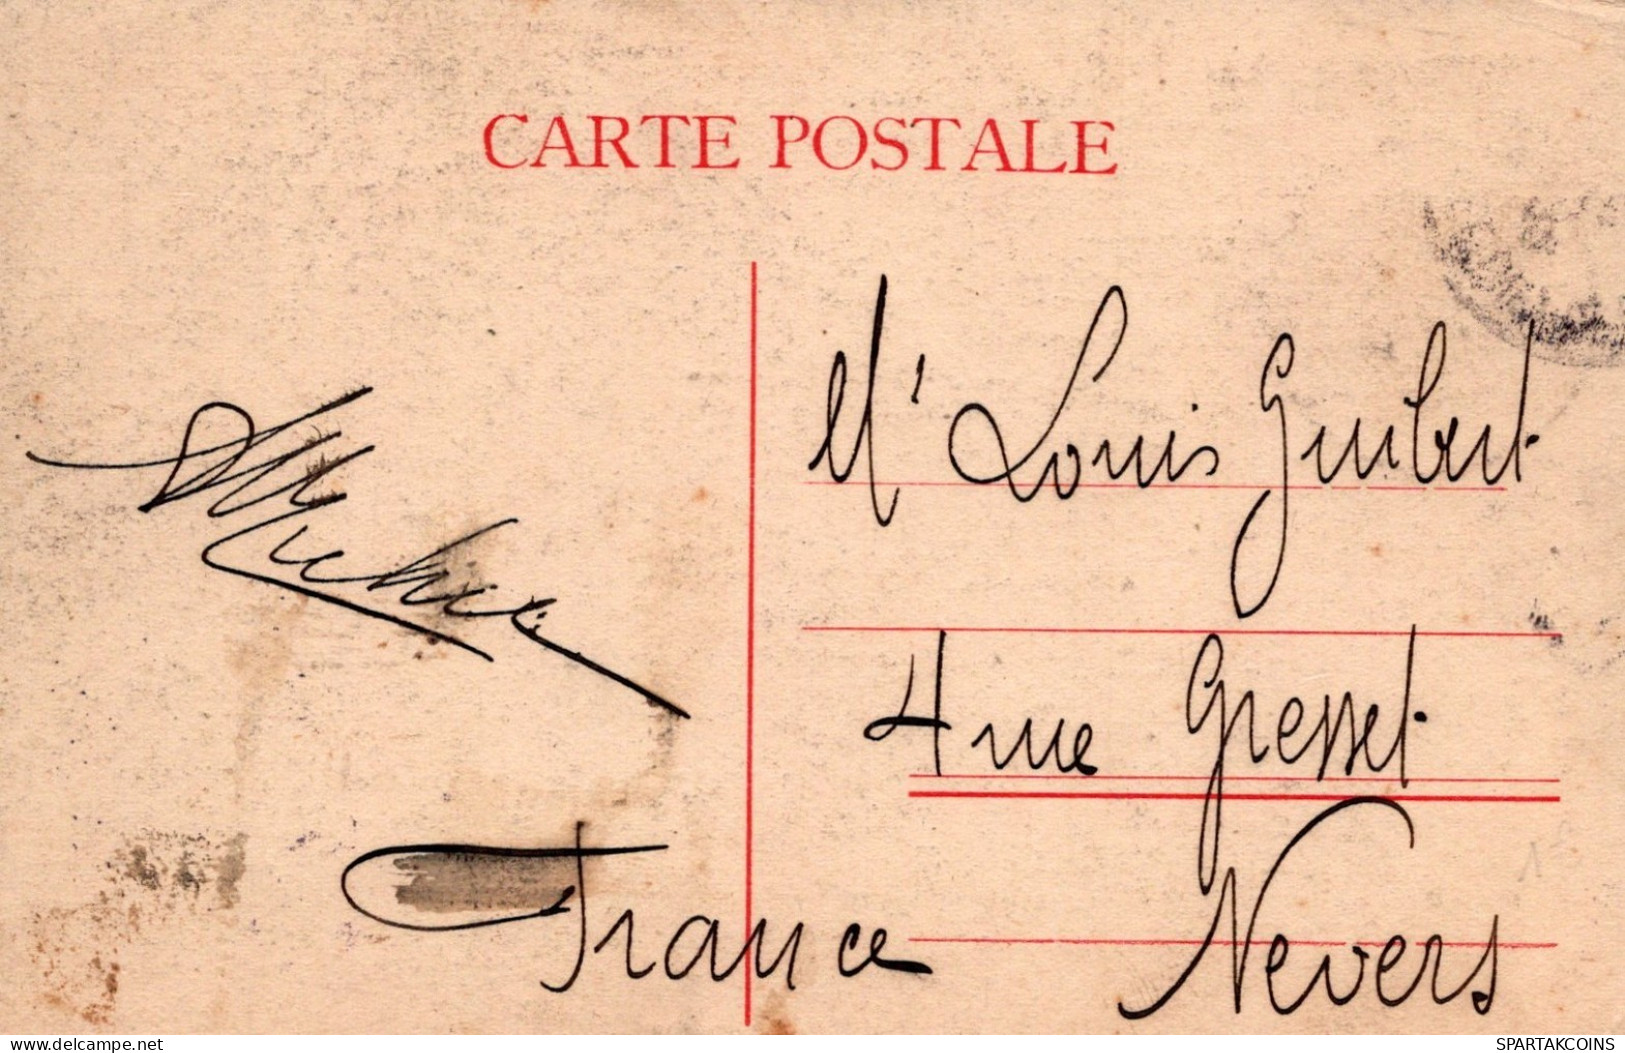 CARTE POSTALE
M' Louis Guibert
4 rue Gresset
Nevers
France
www.delcampe.net
SPARTAKCOINS